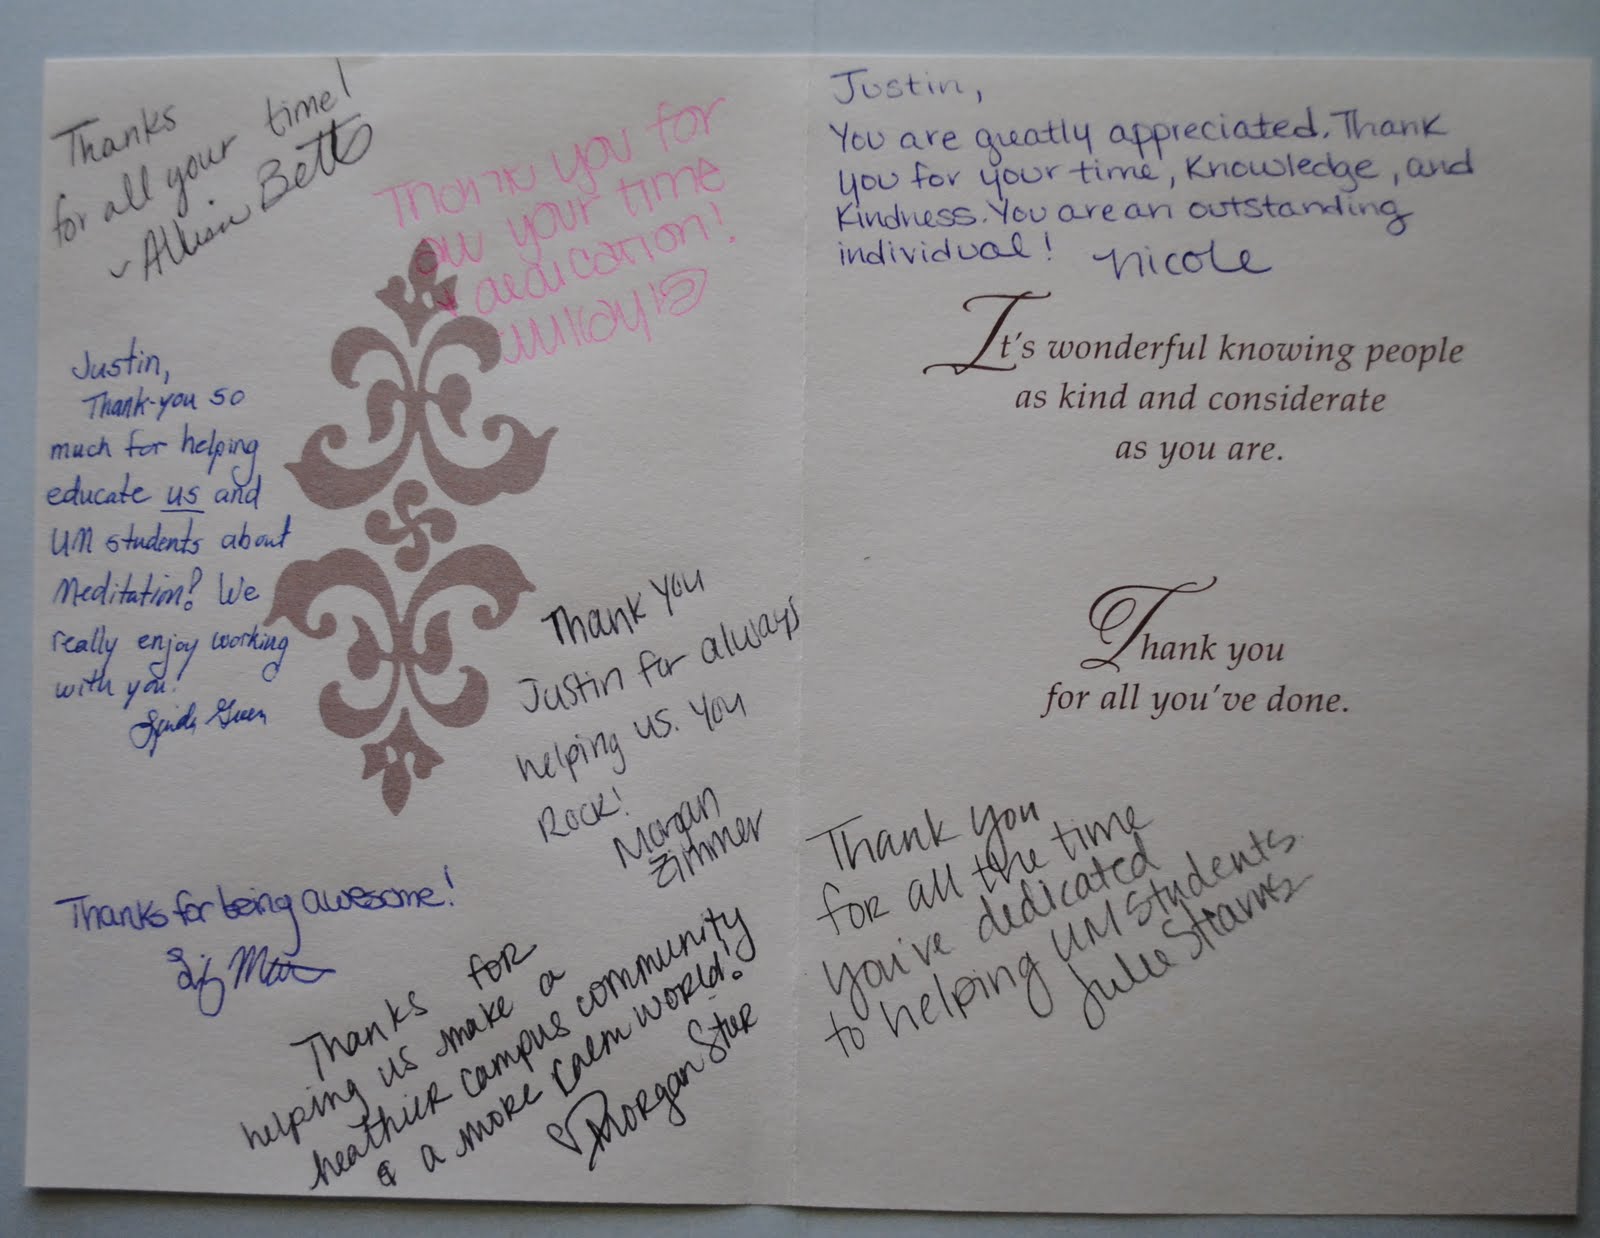 Thanks
for all your time!
~ Allison Betts
Thank you for
all your time
& dedication!
Justin,
Thank-you so
much for helping
educate us and
UM students about
Meditation! We
really enjoy working
with you!
Thank you
Justin for always
helping us. You
Rock!
Morgan
Zimmer
Thanks for being awesome!
Thanks for
helping us make a
healthier campus community
& a more calm world!
♡ Morgan Starr
Justin,
You are greatly appreciated. Thank
you for your time, Knowledge, and
Kindness. You are an outstanding
individual! Nicole
It's wonderful knowing people
as kind and considerate
as you are.
Thank you
for all you've done.
Thank you
for all the time
you've dedicated
to helping UM Students
Julie Stearns